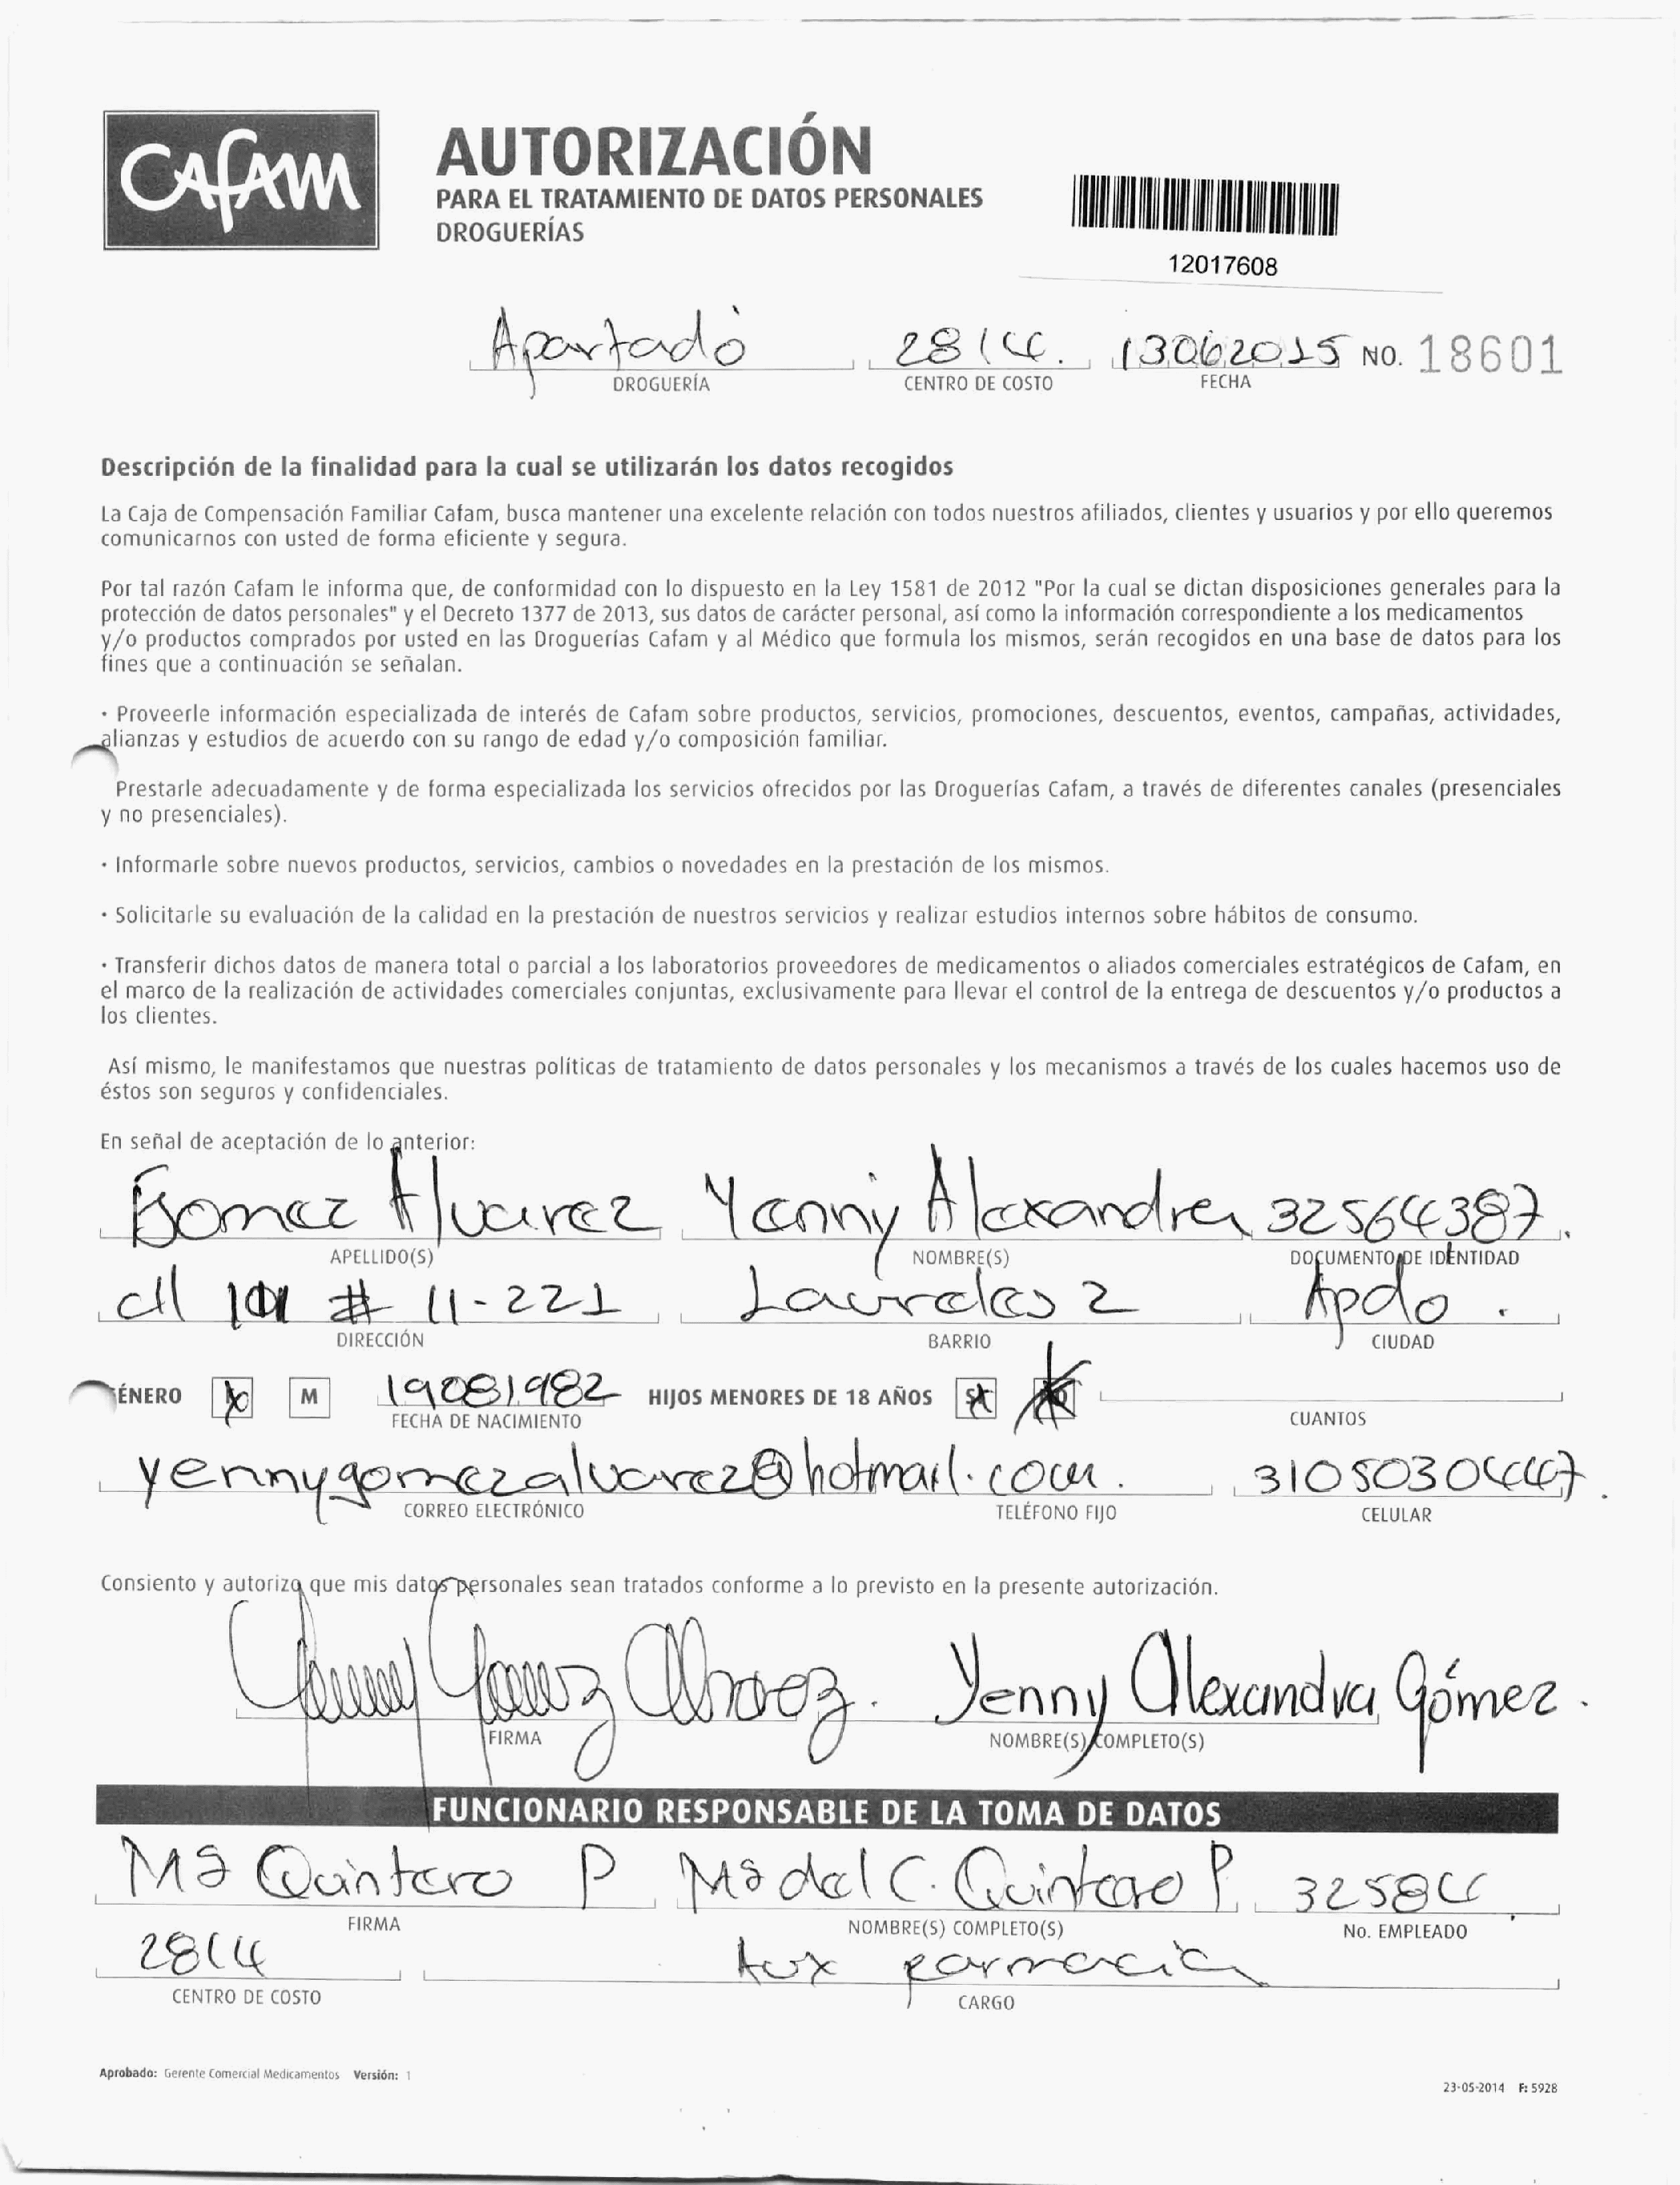 CAFAM
AUTORIZACIÓN
PARA EL TRATAMIENTO DE DATOS PERSONALES
DROGUERÍAS
12017608
Apartadó 2814. 13062015 NO. 18601
DROGUERÍA CENTRO DE COSTO FECHA
Descripción de la finalidad para la cual se utilizarán los datos recogidos
La Caja de Compensación Familiar Cafam, busca mantener una excelente relación con todos nuestros afiliados, clientes y usuarios y por ello queremos
comunicarnos con usted de forma eficiente y segura.
Por tal razón Cafam le informa que, de conformidad con lo dispuesto en la Ley 1581 de 2012 "Por la cual se dictan disposiciones generales para la
protección de datos personales" y el Decreto 1377 de 2013, sus datos de carácter personal, así como la información correspondiente a los medicamentos
y/o productos comprados por usted en las Droguerías Cafam y al Médico que formula los mismos, serán recogidos en una base de datos para los
fines que a continuación se señalan.
· Proveerle información especializada de interés de Cafam sobre productos, servicios, promociones, descuentos, eventos, campañas, actividades,
alianzas y estudios de acuerdo con su rango de edad y/o composición familiar.
Prestarle adecuadamente y de forma especializada los servicios ofrecidos por las Droguerías Cafam, a través de diferentes canales (presenciales
y no presenciales).
· Informarle sobre nuevos productos, servicios, cambios o novedades en la prestación de los mismos.
· Solicitarle su evaluación de la calidad en la prestación de nuestros servicios y realizar estudios internos sobre hábitos de consumo.
· Transferir dichos datos de manera total o parcial a los laboratorios proveedores de medicamentos o aliados comerciales estratégicos de Cafam, en
el marco de la realización de actividades comerciales conjuntas, exclusivamente para llevar el control de la entrega de descuentos y/o productos a
los clientes.
Así mismo, le manifestamos que nuestras políticas de tratamiento de datos personales y los mecanismos a través de los cuales hacemos uso de
éstos son seguros y confidenciales.
En señal de aceptación de lo anterior:
Gomez Alvarez Yenny Alexandra 32564387.
APELLIDO(S) NOMBRE(S) DOCUMENTO DE IDENTIDAD
cll 101 # 11-221 Laureles 2 Apdo.
DIRECCIÓN BARRIO CIUDAD
GÉNERO M 19081982 HIJOS MENORES DE 18 AÑOS
FECHA DE NACIMIENTO CUANTOS
yennygomezalvarez@hotmail.com. 3105030447.
CORREO ELECTRÓNICO TELÉFONO FIJO CELULAR
Consiento y autorizo que mis datos personales sean tratados conforme a lo previsto en la presente autorización.
Yenny Gomez Alvarez. Yenny Alexandra Gómez.
FIRMA NOMBRE(S) COMPLETO(S)
FUNCIONARIO RESPONSABLE DE LA TOMA DE DATOS
Mª Quintero P Mª del C. Quintero P. 32584
FIRMA NOMBRE(S) COMPLETO(S) No. EMPLEADO
2814 Aux farmacia
CENTRO DE COSTO CARGO
Aprobado: Gerente Comercial Medicamentos Versión: 1
23-05-2014 F: 5928